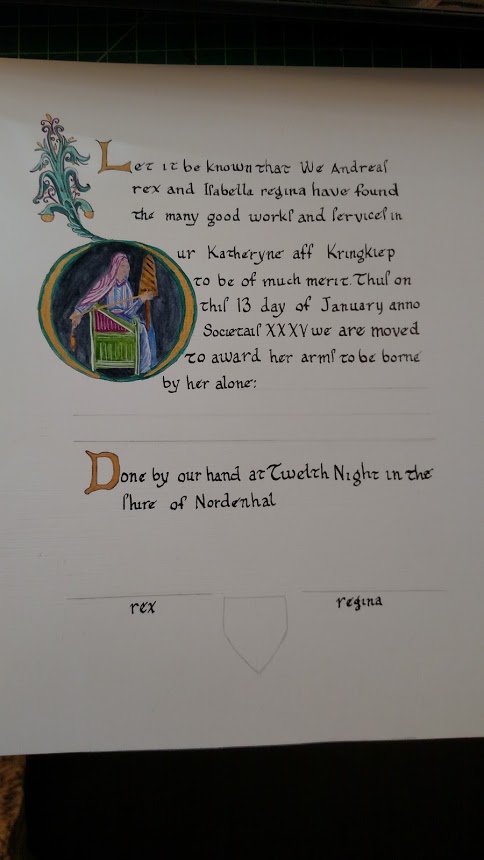 Let it be known that We Andreas
rex and Isabella regina have found
the many good works and services in
Our Katheryne aff Kringkiep
to be of much merit. Thus on
this 13 day of January anno
Societais XXXV we are moved
to award her arms to be borne
by her alone:
Done by our hand at Twelth Night in the
shire of Nordenhal
rex
regina